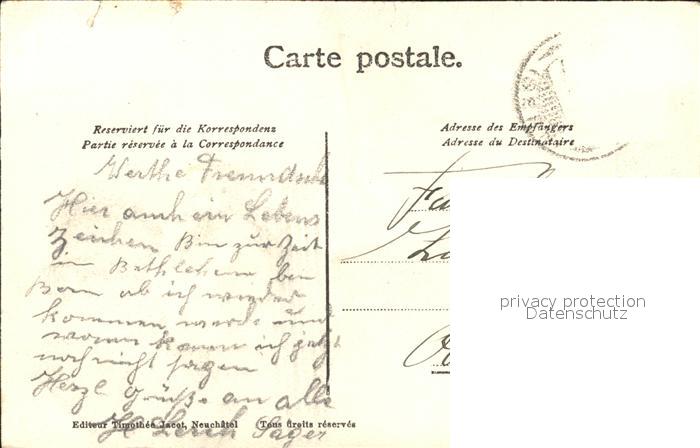 Carte postale.
Reserviert für die Korrespondenz
Partie réservée à la Correspondance
Adresse des Empfängers
Adresse du Destinataire
Werthe
Hier auch ein Lebens
Zeichen Bin zur Zeit
in Bethlehem bei
Bern ob ich wieder
kommen werde und
wann kann ich jetzt
noch nicht sagen
Herzl Grüße an alle
privacy protection
Datenschutz
Editeur Timothée Jacot, Neuchâtel Tous droits réservés